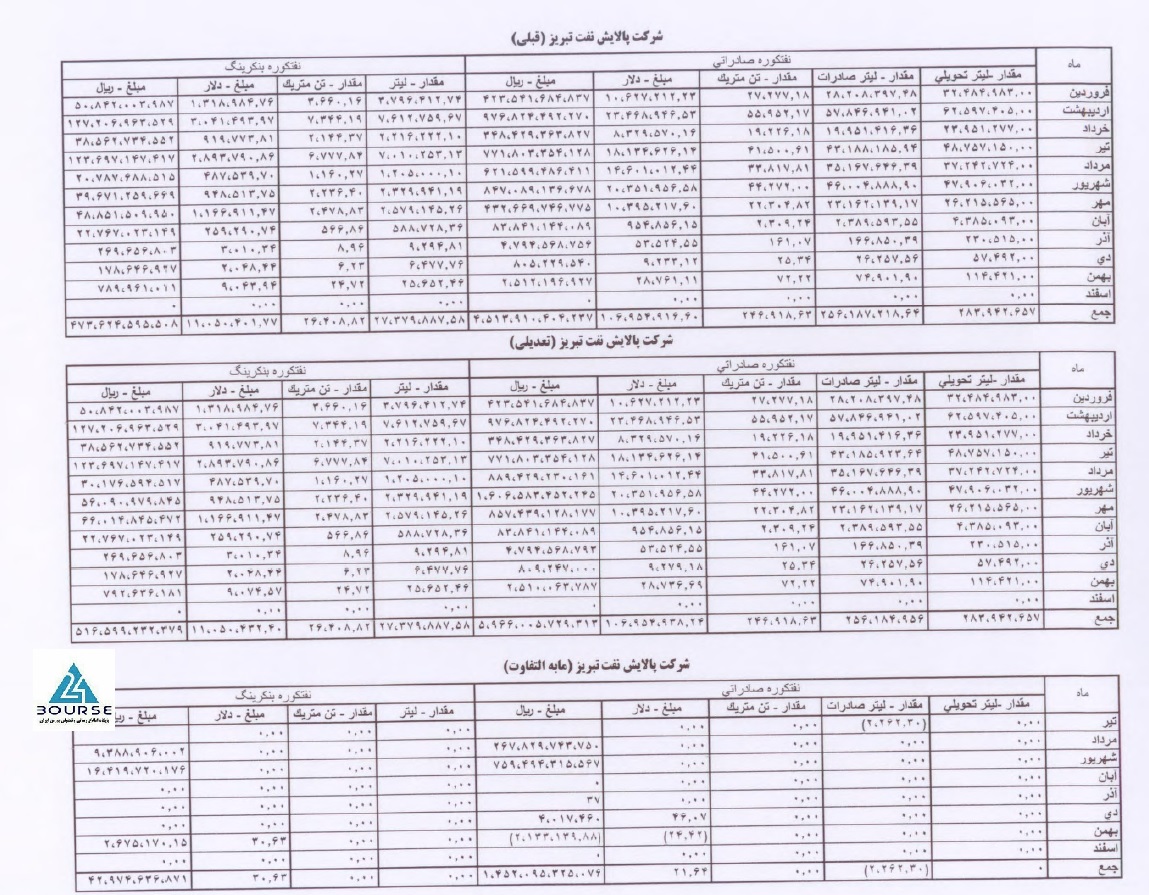 شرکت پالایش نفت تبریز (قبلی)
ماه نفتکوره صادراتي نفتکوره بنکرینگ
مقدار -لیتر تحویلي مقدار - لیتر صادرات مقدار - تن متریك مبلغ - دلار مبلغ - ریال مقدار - لیتر مقدار - تن متریك مبلغ - دلار مبلغ - ریال
فروردین ۳۲،۴۸۴،۹۸۳,۰۰ ۲۸،۲۰۸،۳۹۷,۴۸ ۲۷،۲۷۷,۱۸ ۱۰،۶۲۷،۲۱۲,۲۳ ۴۲۳،۵۴۱،۶۸۴،۸۳۷ ۳،۷۹۶،۴۱۲,۷۴ ۳،۶۶۰,۱۶ ۱،۳۱۸،۹۸۴,۷۶ ۵۰،۸۴۲،۰۰۳،۹۸۷
اردیبهشت ۶۲،۵۹۷،۴۰۵,۰۰ ۵۷،۸۴۶،۹۴۱,۰۲ ۵۵،۹۵۲,۱۷ ۲۳،۴۶۸،۹۴۶,۵۳ ۹۷۶،۸۲۴،۴۹۲،۲۷۰ ۷،۶۱۲،۷۵۹,۶۷ ۷،۳۴۴,۱۹ ۳،۰۴۱،۴۹۳,۹۷ ۱۲۷،۲۰۶،۹۶۳،۵۲۹
خرداد ۲۳،۹۵۱،۲۷۷,۰۰ ۱۹،۹۵۱،۴۱۶,۳۶ ۱۹،۲۲۶,۱۸ ۸،۳۲۹،۵۷۰,۱۶ ۳۴۸،۴۲۹،۳۶۳،۸۲۷ ۲،۲۱۶،۲۲۲,۱۰ ۲،۱۴۴,۳۷ ۹۱۹،۷۷۳,۸۱ ۳۸،۵۶۲،۷۳۴،۵۵۲
تیر ۴۸،۷۵۷،۱۵۰,۰۰ ۴۳،۱۸۸،۱۸۵,۹۴ ۴۱،۵۰۰,۶۱ ۱۸،۱۳۴،۶۲۶,۱۴ ۷۷۱،۸۰۳،۳۵۴،۱۲۸ ۷،۰۱۰،۲۵۳,۱۳ ۶،۷۷۷,۸۴ ۲،۸۹۳،۷۹۰,۸۶ ۱۲۳،۶۹۷،۱۴۷،۴۱۷
مرداد ۳۷،۲۴۲،۷۲۴,۰۰ ۳۵،۱۶۷،۶۴۶,۳۹ ۳۳،۸۱۷,۸۱ ۱۴،۶۰۱،۰۱۲,۴۴ ۶۲۱،۵۹۹،۴۸۶،۴۱۱ ۱،۲۰۵،۰۰۰,۱۰ ۱،۱۶۰,۲۷ ۴۸۷،۵۳۹,۷۰ ۲۰،۷۸۷،۶۸۸،۵۱۵
شهریور ۴۷،۹۰۶،۰۳۲,۰۰ ۴۶،۰۰۴،۸۸۸,۹۰ ۴۴،۲۷۲,۰۰ ۲۰،۳۵۱،۹۵۶,۵۸ ۸۴۷،۰۸۹،۱۳۶،۶۷۸ ۲،۳۲۹،۹۴۱,۱۹ ۲،۲۳۶,۴۰ ۹۴۸،۵۱۳,۷۵ ۳۹،۶۷۱،۲۵۹،۶۶۹
مهر ۲۶،۲۱۵،۵۶۵,۰۰ ۲۳،۱۶۲،۱۳۹,۱۷ ۲۲،۳۰۴,۸۲ ۱۰،۳۹۵،۲۱۷,۶۰ ۴۳۲،۶۶۹،۷۴۶،۷۷۵ ۲،۵۷۹،۱۴۵,۲۶ ۲،۴۷۸,۸۳ ۱،۱۶۶،۹۱۱,۴۷ ۴۸،۸۵۱،۵۰۹،۹۵۰
آبان ۴،۳۸۵،۰۹۳,۰۰ ۲،۳۸۹،۵۹۳,۵۵ ۲،۳۰۹,۲۴ ۹۵۴،۸۵۶,۱۵ ۸۳،۸۴۱،۱۴۴،۰۸۹ ۵۸۸،۷۲۸,۳۶ ۵۶۶,۸۶ ۲۵۹،۲۹۰,۷۴ ۲۲،۷۶۷،۰۲۳،۱۴۹
آذر ۲۳۰،۵۱۵,۰۰ ۱۶۶،۸۵۰,۳۹ ۱۶۱,۰۷ ۵۳،۵۲۴,۵۵ ۴،۷۹۴،۵۶۸،۷۵۶ ۹،۲۹۴,۸۱ ۸,۹۶ ۳،۰۱۰,۳۴ ۲۶۹،۶۵۶،۸۰۳
دي ۵۷،۴۹۲,۰۰ ۲۶،۲۵۷,۵۶ ۲۵,۳۴ ۹،۲۳۳,۱۲ ۸۰۵،۲۲۹،۵۴۰ ۶،۴۷۷,۷۶ ۶,۲۳ ۲،۰۴۸,۴۴ ۱۷۸،۶۴۶،۹۲۷
بهمن ۱۱۴،۴۲۱,۰۰ ۷۴،۹۰۱,۹۰ ۷۲,۲۲ ۲۸،۷۶۱,۱۱ ۲،۵۱۲،۱۹۶،۹۲۷ ۲۵،۶۵۲,۴۶ ۲۴,۷۲ ۹،۰۴۳,۹۴ ۷۸۹،۹۶۱،۰۱۱
اسفند ۰,۰۰ ۰,۰۰ ۰,۰۰ ۰,۰۰ ۰ ۰,۰۰ ۰,۰۰ ۰,۰۰ ۰
جمع ۲۸۳،۹۴۲،۶۵۷ ۲۵۶،۱۸۷،۲۱۸,۶۴ ۲۴۶،۹۱۸,۶۳ ۱۰۶،۹۵۴،۹۱۶,۶۰ ۴،۵۱۳،۹۱۰،۴۰۴،۲۳۷ ۲۷،۳۷۹،۸۸۷,۵۸ ۲۶،۴۰۸,۸۲ ۱۱،۰۵۰،۴۰۱,۷۷ ۴۷۳،۶۲۴،۵۹۵،۵۰۸
شرکت پالایش نفت تبریز (تعدیلی)
ماه نفتکوره صادراتي نفتکوره بنکرینگ
مقدار -لیتر تحویلي مقدار - لیتر صادرات مقدار - تن متریك مبلغ - دلار مبلغ - ریال مقدار - لیتر مقدار - تن متریك مبلغ - دلار مبلغ - ریال
فروردین ۳۲،۴۸۴،۹۸۳,۰۰ ۲۸،۲۰۸،۳۹۷,۴۸ ۲۷،۲۷۷,۱۸ ۱۰،۶۲۷،۲۱۲,۲۳ ۴۲۳،۵۴۱،۶۸۴،۸۳۷ ۳،۷۹۶،۴۱۲,۷۴ ۳،۶۶۰,۱۶ ۱،۳۱۸،۹۸۴,۷۶ ۵۰،۸۴۲،۰۰۳،۹۸۷
اردیبهشت ۶۲،۵۹۷،۴۰۵,۰۰ ۵۷،۸۴۶،۹۴۱,۰۲ ۵۵،۹۵۲,۱۷ ۲۳،۴۶۸،۹۴۶,۵۳ ۹۷۶،۸۲۴،۴۹۲،۲۷۰ ۷،۶۱۲،۷۵۹,۶۷ ۷،۳۴۴,۱۹ ۳،۰۴۱،۴۹۳,۹۷ ۱۲۷،۲۰۶،۹۶۳،۵۲۹
خرداد ۲۳،۹۵۱،۲۷۷,۰۰ ۱۹،۹۵۱،۴۱۶,۳۶ ۱۹،۲۲۶,۱۸ ۸،۳۲۹،۵۷۰,۱۶ ۳۴۸،۴۲۹،۳۶۳،۸۲۷ ۲،۲۱۶،۲۲۲,۱۰ ۲،۱۴۴,۳۷ ۹۱۹،۷۷۳,۸۱ ۳۸،۵۶۲،۷۳۴،۵۵۲
تیر ۴۸،۷۵۷،۱۵۰,۰۰ ۴۳،۱۸۵،۹۲۳,۶۴ ۴۱،۵۰۰,۶۱ ۱۸،۱۳۴،۶۲۶,۱۴ ۷۷۱،۸۰۳،۳۵۴،۱۲۸ ۷،۰۱۰،۲۵۳,۱۳ ۶،۷۷۷,۸۴ ۲،۸۹۳،۷۹۰,۸۶ ۱۲۳،۶۹۷،۱۴۷،۴۱۷
مرداد ۳۷،۲۴۲،۷۲۴,۰۰ ۳۵،۱۶۷،۶۴۶,۳۹ ۳۳،۸۱۷,۸۱ ۱۴،۶۰۱،۰۱۲,۴۴ ۸۸۹،۴۲۹،۲۳۰،۱۶۱ ۱،۲۰۵،۰۰۰,۱۰ ۱،۱۶۰,۲۷ ۴۸۷،۵۳۹,۷۰ ۳۰،۱۷۶،۵۹۴،۵۱۷
شهریور ۴۷،۹۰۶،۰۳۲,۰۰ ۴۶،۰۰۴،۸۸۸,۹۰ ۴۴،۲۷۲,۰۰ ۲۰،۳۵۱،۹۵۶,۵۸ ۱،۶۰۶،۵۸۳،۴۵۲،۲۴۵ ۲،۳۲۹،۹۴۱,۱۹ ۲،۲۳۶,۴۰ ۹۴۸،۵۱۳,۷۵ ۵۶،۰۹۰،۹۷۹،۸۴۵
مهر ۲۶،۲۱۵،۵۶۵,۰۰ ۲۳،۱۶۲،۱۳۹,۱۷ ۲۲،۳۰۴,۸۲ ۱۰،۳۹۵،۲۱۷,۶۰ ۸۵۷،۴۳۹،۱۲۸،۱۷۷ ۲،۵۷۹،۱۴۵,۲۶ ۲،۴۷۸,۸۳ ۱،۱۶۶،۹۱۱,۴۷ ۶۶،۰۱۴،۸۴۵،۴۷۲
آبان ۴،۳۸۵،۰۹۳,۰۰ ۲،۳۸۹،۵۹۳,۵۵ ۲،۳۰۹,۲۴ ۹۵۴،۸۵۶,۱۵ ۸۳،۸۴۱،۱۴۴،۰۸۹ ۵۸۸،۷۲۸,۳۶ ۵۶۶,۸۶ ۲۵۹،۲۹۰,۷۴ ۲۲،۷۶۷،۰۲۳،۱۴۹
آذر ۲۳۰،۵۱۵,۰۰ ۱۶۶،۸۵۰,۳۹ ۱۶۱,۰۷ ۵۳،۵۲۴,۵۵ ۴،۷۹۴،۵۶۸،۷۹۳ ۹،۲۹۴,۸۱ ۸,۹۶ ۳،۰۱۰,۳۴ ۲۶۹،۶۵۶،۸۰۳
دي ۵۷،۴۹۲,۰۰ ۲۶،۲۵۷,۵۶ ۲۵,۳۴ ۹،۲۷۹,۱۸ ۸۰۹،۲۴۷،۰۰۰ ۶،۴۷۷,۷۶ ۶,۲۳ ۲،۰۴۸,۴۴ ۱۷۸،۶۴۶،۹۲۷
بهمن ۱۱۴،۴۲۱,۰۰ ۷۴،۹۰۱,۹۰ ۷۲,۲۲ ۲۸،۷۳۶,۶۹ ۲،۵۱۰،۰۶۳،۷۸۷ ۲۵،۶۵۲,۴۶ ۲۴,۷۲ ۹،۰۷۴,۵۷ ۷۹۲،۶۳۶،۱۸۱
اسفند ۰,۰۰ ۰,۰۰ ۰,۰۰ ۰,۰۰ ۰ ۰,۰۰ ۰,۰۰ ۰,۰۰ ۰
جمع ۲۸۳،۹۴۲،۶۵۷ ۲۵۶،۱۸۴،۹۵۶ ۲۴۶،۹۱۸,۶۳ ۱۰۶،۹۵۴،۹۳۸,۲۴ ۵،۹۶۶،۰۰۵،۷۲۹،۳۱۳ ۲۷،۳۷۹،۸۸۷,۵۸ ۲۶،۴۰۸,۸۲ ۱۱،۰۵۰،۴۳۲,۴۰ ۵۱۶،۵۹۹،۲۳۲،۳۷۹
شرکت پالایش نفت تبریز (مابه التفاوت)
ماه نفتکوره صادراتي نفتکوره بنکرینگ
مقدار -لیتر تحویلي مقدار - لیتر صادرات مقدار - تن متریك مبلغ - دلار مبلغ - ریال مقدار - لیتر مقدار - تن متریك مبلغ - دلار مبلغ - ریال
تیر ۰,۰۰ (۲،۲۶۲,۳۰) ۰,۰۰ ۰,۰۰ ۰,۰۰ ۰,۰۰ ۰,۰۰
مرداد ۰,۰۰ ۰,۰۰ ۰,۰۰ ۰,۰۰ ۲۶۷،۸۲۹،۷۴۳,۷۵۰ ۰,۰۰ ۰,۰۰ ۰,۰۰ ۹،۳۸۸،۹۰۶،۰۰۲
شهریور ۰,۰۰ ۰,۰۰ ۰,۰۰ ۰,۰۰ ۷۵۹،۴۹۴،۳۱۵،۵۶۷ ۰,۰۰ ۰,۰۰ ۰,۰۰ ۱۶،۴۱۹،۷۲۰،۱۷۶
آبان ۰,۰۰ ۰,۰۰ ۰,۰۰ ۰,۰۰ ۰ ۰,۰۰ ۰,۰۰ ۰,۰۰ ۰,۰۰
آذر ۰,۰۰ ۰,۰۰ ۰,۰۰ ۰,۰۰ ۳۷ ۰,۰۰ ۰,۰۰ ۰,۰۰ ۰,۰۰
دي ۰,۰۰ ۰,۰۰ ۰,۰۰ ۴۶,۰۷ ۴،۰۱۷،۴۶۰ ۰,۰۰ ۰,۰۰ ۰,۰۰ ۰,۰۰
بهمن ۰,۰۰ ۰,۰۰ ۰,۰۰ (۲۴,۴۲) (۲،۱۳۳،۱۳۹,۸۸) ۰,۰۰ ۰,۰۰ ۳۰,۶۳ ۲،۶۷۵،۱۷۰,۱۵
اسفند ۰,۰۰ ۰,۰۰ ۰,۰۰ ۰,۰۰ ۰ ۰,۰۰ ۰,۰۰ ۰,۰۰ ۰,۰۰
جمع ۰ (۲،۲۶۲,۳۰) ۰,۰۰ ۲۱,۶۴ ۱،۴۵۲،۰۹۵،۳۲۵،۰۷۶ ۰,۰۰ ۰,۰۰ ۳۰,۶۳ ۴۲،۹۷۴،۶۳۶،۸۷۱
24
BOURSE